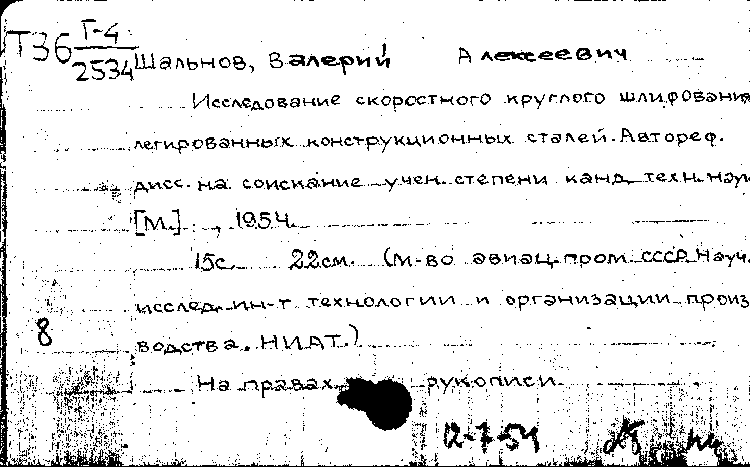 Т36 Г-4
2534
Шальнов, Валерий Алексеевич
Исследование скоростного круглого шлифования
легированных конструкционных сталей. Автореф.
дисс. на соискание учен. степени канд. техн. наук
[М.], 1954.
15с. 22см. (М-во авиац. пром. СССР. Науч.
исслед. ин-т технологии и организации произ
водства. НИАТ.)
8
На правах рукописи
12-7-54